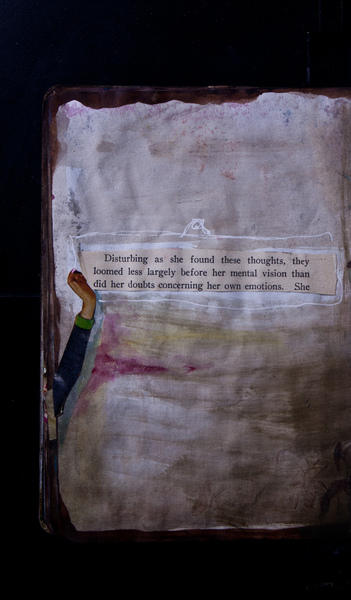 Disturbing as she found these thoughts, they
loomed less largely before her mental vision than
did her doubts concerning her own emotions. She